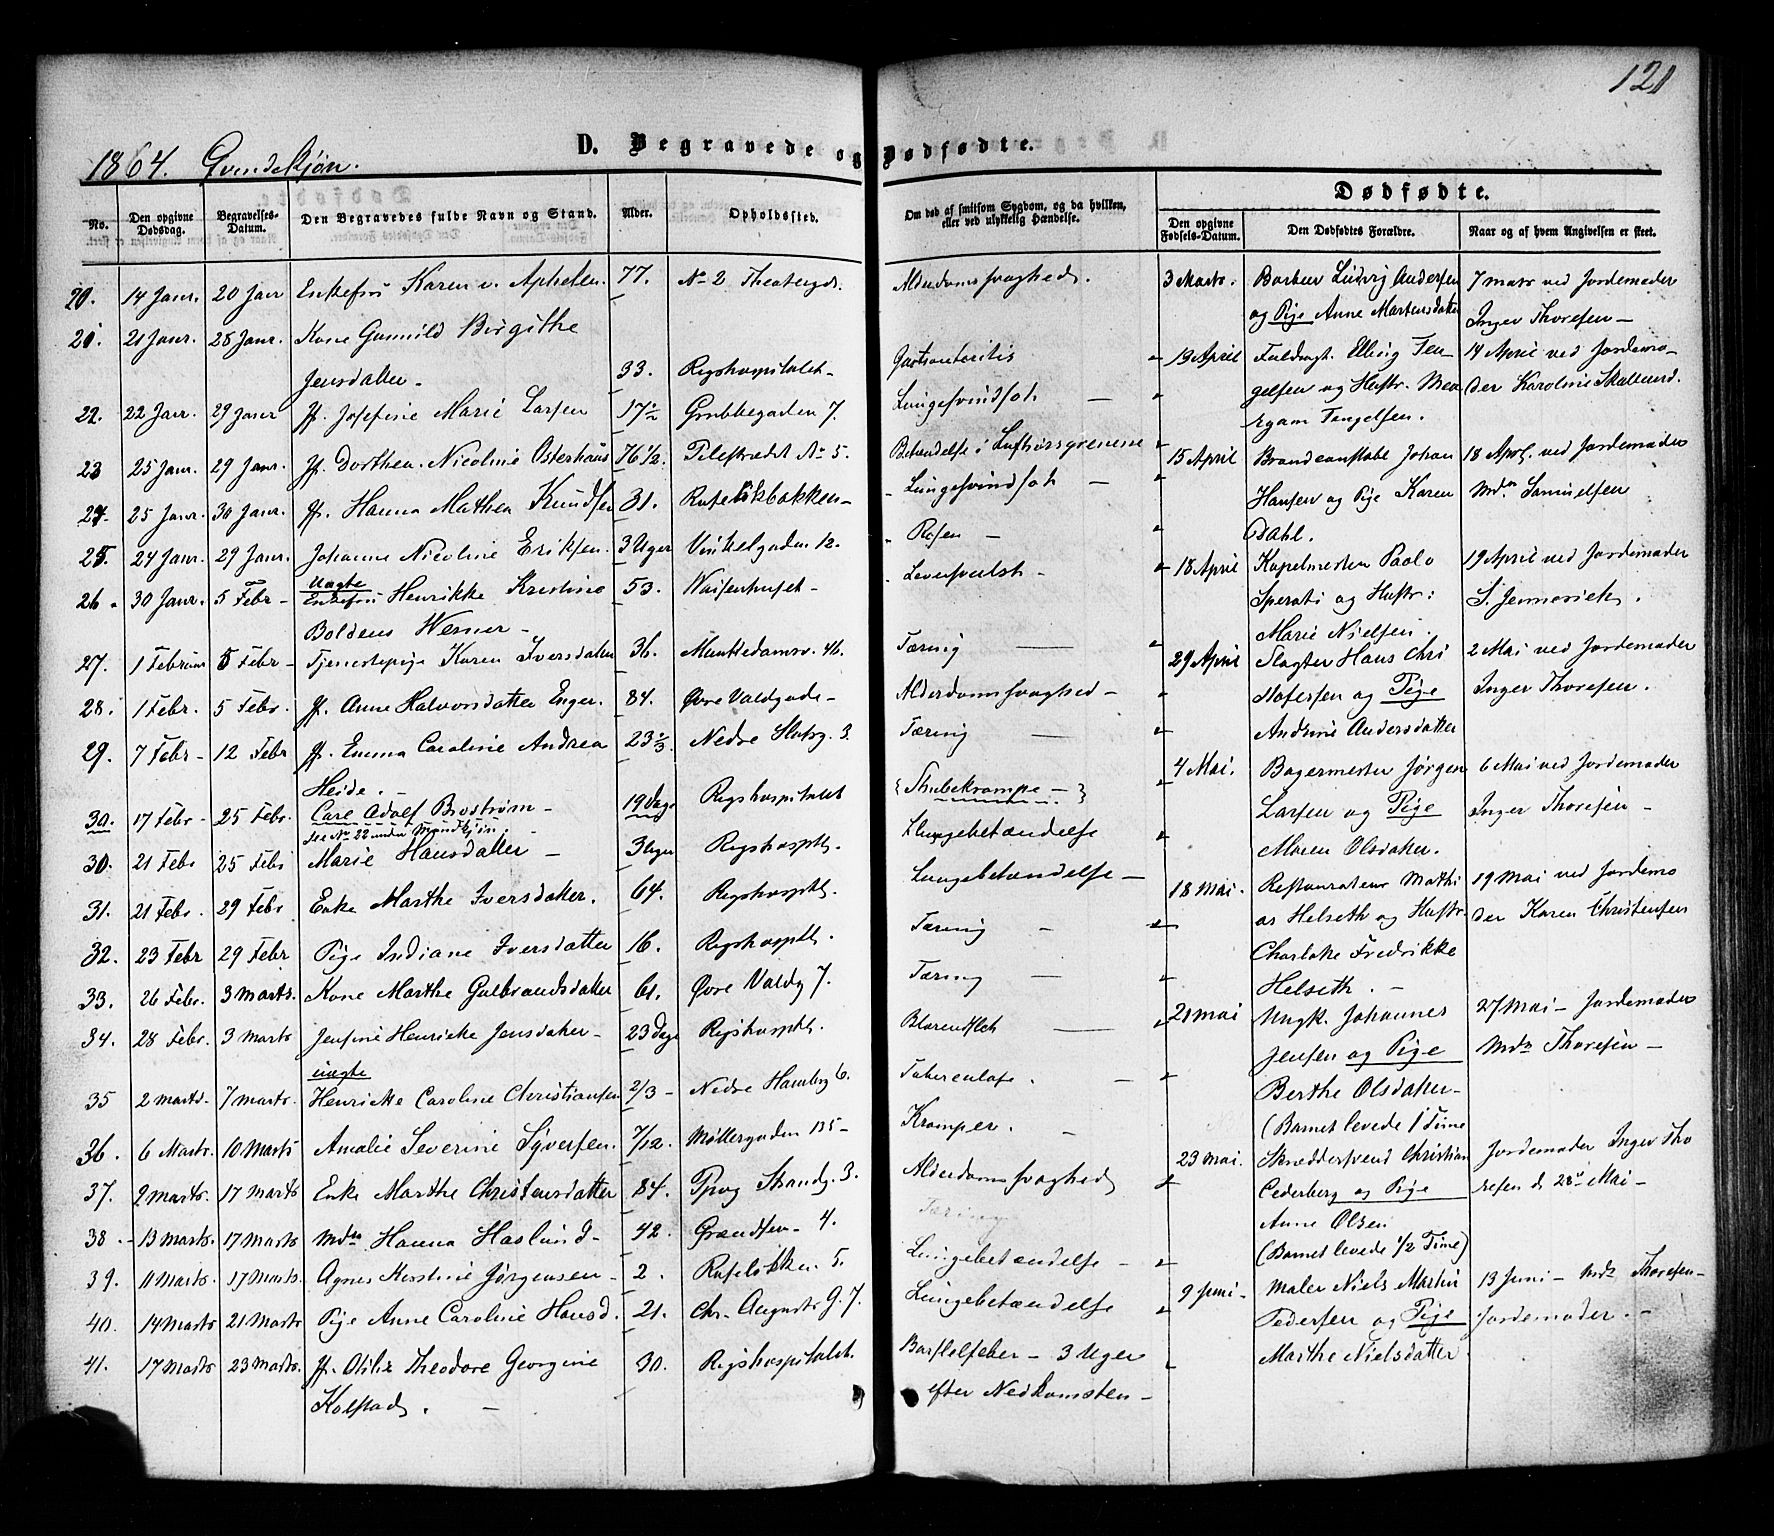 121
1864. Qvindekjøn.
D. Begravede og Dødfødte.
No.
Den opgivne Dødsdag.
Begravelses-Datum.
Den Begravedes fulde Navn og Stand.
Alder.
Opholdssted.
Om død af smitsom Sygdom, og da hvilken, eller ved ulykkelig Hændelse.
Dødfødte.
Den opgivne Fødsels-Datum.
Den Dødfødtes Forældre.
Naar og af hvem Angivelsen er skeet.
20. 14 Janr. 20 Janr Enkefru Karen v. Aphelen. 77. No 2 Theatergd. Alderdomssvaghed.
21. 21 Janr. 28 Janr. Kone Gunnild Birgithe
Jensdatter - 33. Rigshospitalet -
22. 22 Janr. 29 Janr Jf. Josefine Marie Larsen 17 1/2 Grubbegaden 7. Lungesvindsot -
23 25 Janr. 29 Janr. Jf. Dorthea Nicoline Osterhaus 76 1/2. Pilestrædet No 5. Betændelse i Luftrørsgrenene
24. 25 Janr. 30 Janr. Jf. Hanna Mathea Knudsen 31. Ruseløkbakken - Lungesvindsot -
25. 24 Janr. 29 Janr. Johanne Nicoline Eriksen. 3 Uger Vinkelgaden 12. Rosen -
uægte
26. 30 Janr. 5 Febr - Enkefru Henrikke Kristine 53. Waisenhuset - Leversvulst -
Boldens Werner -
27. 1 Februar 5 Febr - Tjenestepige Karen Iversdatter 36. Munkedamsv. 46. Tæring -
28. 1 Febr. 5 Febr. Jf. Anne Halvorsdatter Enger. 84. Øvre Voldgade - Alderdomssvaghed -
29. 7 Febr - 12 Febr Jf. Emma Caroline Andrea 23 1/3. Nedre Slotsg. 3. Tæring -
Heide. -
30. 17 Febr - 25 Febr. Carl Adolf Boström - 19 Dage Rigshospitalet { Strubekrampe - }
see No 22 under Mandkjøn.
30. 21 Febr 25 Febr Marie Hansdatter - 3 Uger Rigshosptl. Lungebetændelse
31. 21 Febr. 29 Febr Enke Marthe Iversdatter. 64. Rigshosptl. Lungebetændelse -
32. 23 Febr 29 Febr Pige Indiane Iversdatter 16. Rigshosptl. Tæring -
33. 26 Febr. 3 Marts. Kone Marthe Gulbrandsdatter 61. Øvre Voldg 7. Tæring -
34. 28 Febr. 3 Marts Jensine Henrikke Jensdatter - 23 Dage Rigshosptl.
uægte
35 2 Marts - 7 Marts. Henrikke Caroline Christiansen 2/3 - Nedre Hambg 6.
36. 6 Marts. 10 Marts Amalie Severine Syversen. 7/12. Møllergaden 135 - Kramper. -
37. 9 Marts. 17 Marts Enke Marthe Christensdatter 84. Pros Strandg. 3. Alderdomssvaghed
38 - 13 Marts. 17 Marts Mdm Hanna Haslund - 42. Grændsen - 4. Tæring
39. 11 Marts. 17 Marts. Agnes Kristine Jørgensen - 2. Ruseløkken 5. Lungebetændelse -
40. 14 Marts 21 Marts Pige Anne Caroline Hansd. 21. Chr. Augusts G. 7. Lungebetændelse
41. 17 Marts 23 Marts. Jf. Otilie Theodore Georgine 30. Rigshospitalet. Barselfeber - 3 Uger
Kolstad. - efter Nedkomsten -
3 Marts. Barber Ludvig Andersen 7 Marts ved Jordemoder
og Pige Anne Martensdatter Inger Thoresen -
19 April Fuldmgt. Ellevig Ten- 14 April ved Jordemo-
gelsen og Hustr. der Karoline
Tengelsen.
15 April Brandconstabel Johan 18 April. ved Jordemoder
Hansen og Pige Karen Mdm Samuelsen
Dahl.
18 April Kapelmester Paolo 19 April ved Jordemoder
Sperati og Hustr:
Marie Nielsen.
29 April Slagter Hans Chri 2 Mai ved Jordemoder
stofersen og Pige Inger Thoresen.
Andrine Andersdatter
4 Mai. Bagermester Jørgen 6 Mai ved Jordemoder
Larsen og Pige Inger Thoresen -
Maren Olsdatter.
18 Mai. Restaurateur Mathi 19 Mai ved Jordemo
as Helseth og Hustr. der Karen Christensen
Charlotte Fredrikke
Helseth. -
21 Mai Ungk. Johannes 27 Mai - Jordemoder
Jensen og Pige Mdm Thoresen -
Berthe Olsdatter -
(Barnet levede 1 Time
23 Mai. Skræddersvend Christian Jordemoder Inger Tho
Cederberg og Pige resen d. 28 Mai -
Anne Olsen
(Barnet levede 1/2 Time)
9 Juni - Maler Niels Martin 13 Juni - Mdm Thoresen -
Pedersen og Pige Jordemoder. -
Marthe Nielsdatter.